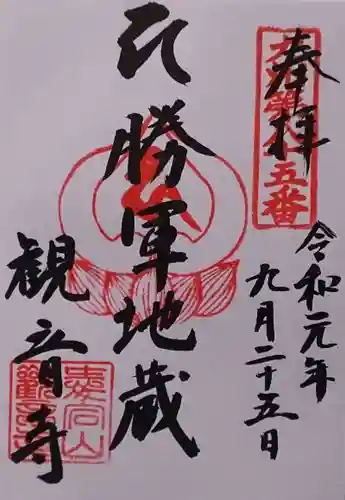 奉拝
令和元年
九月二十五日
勝軍地蔵
観音寺
五番